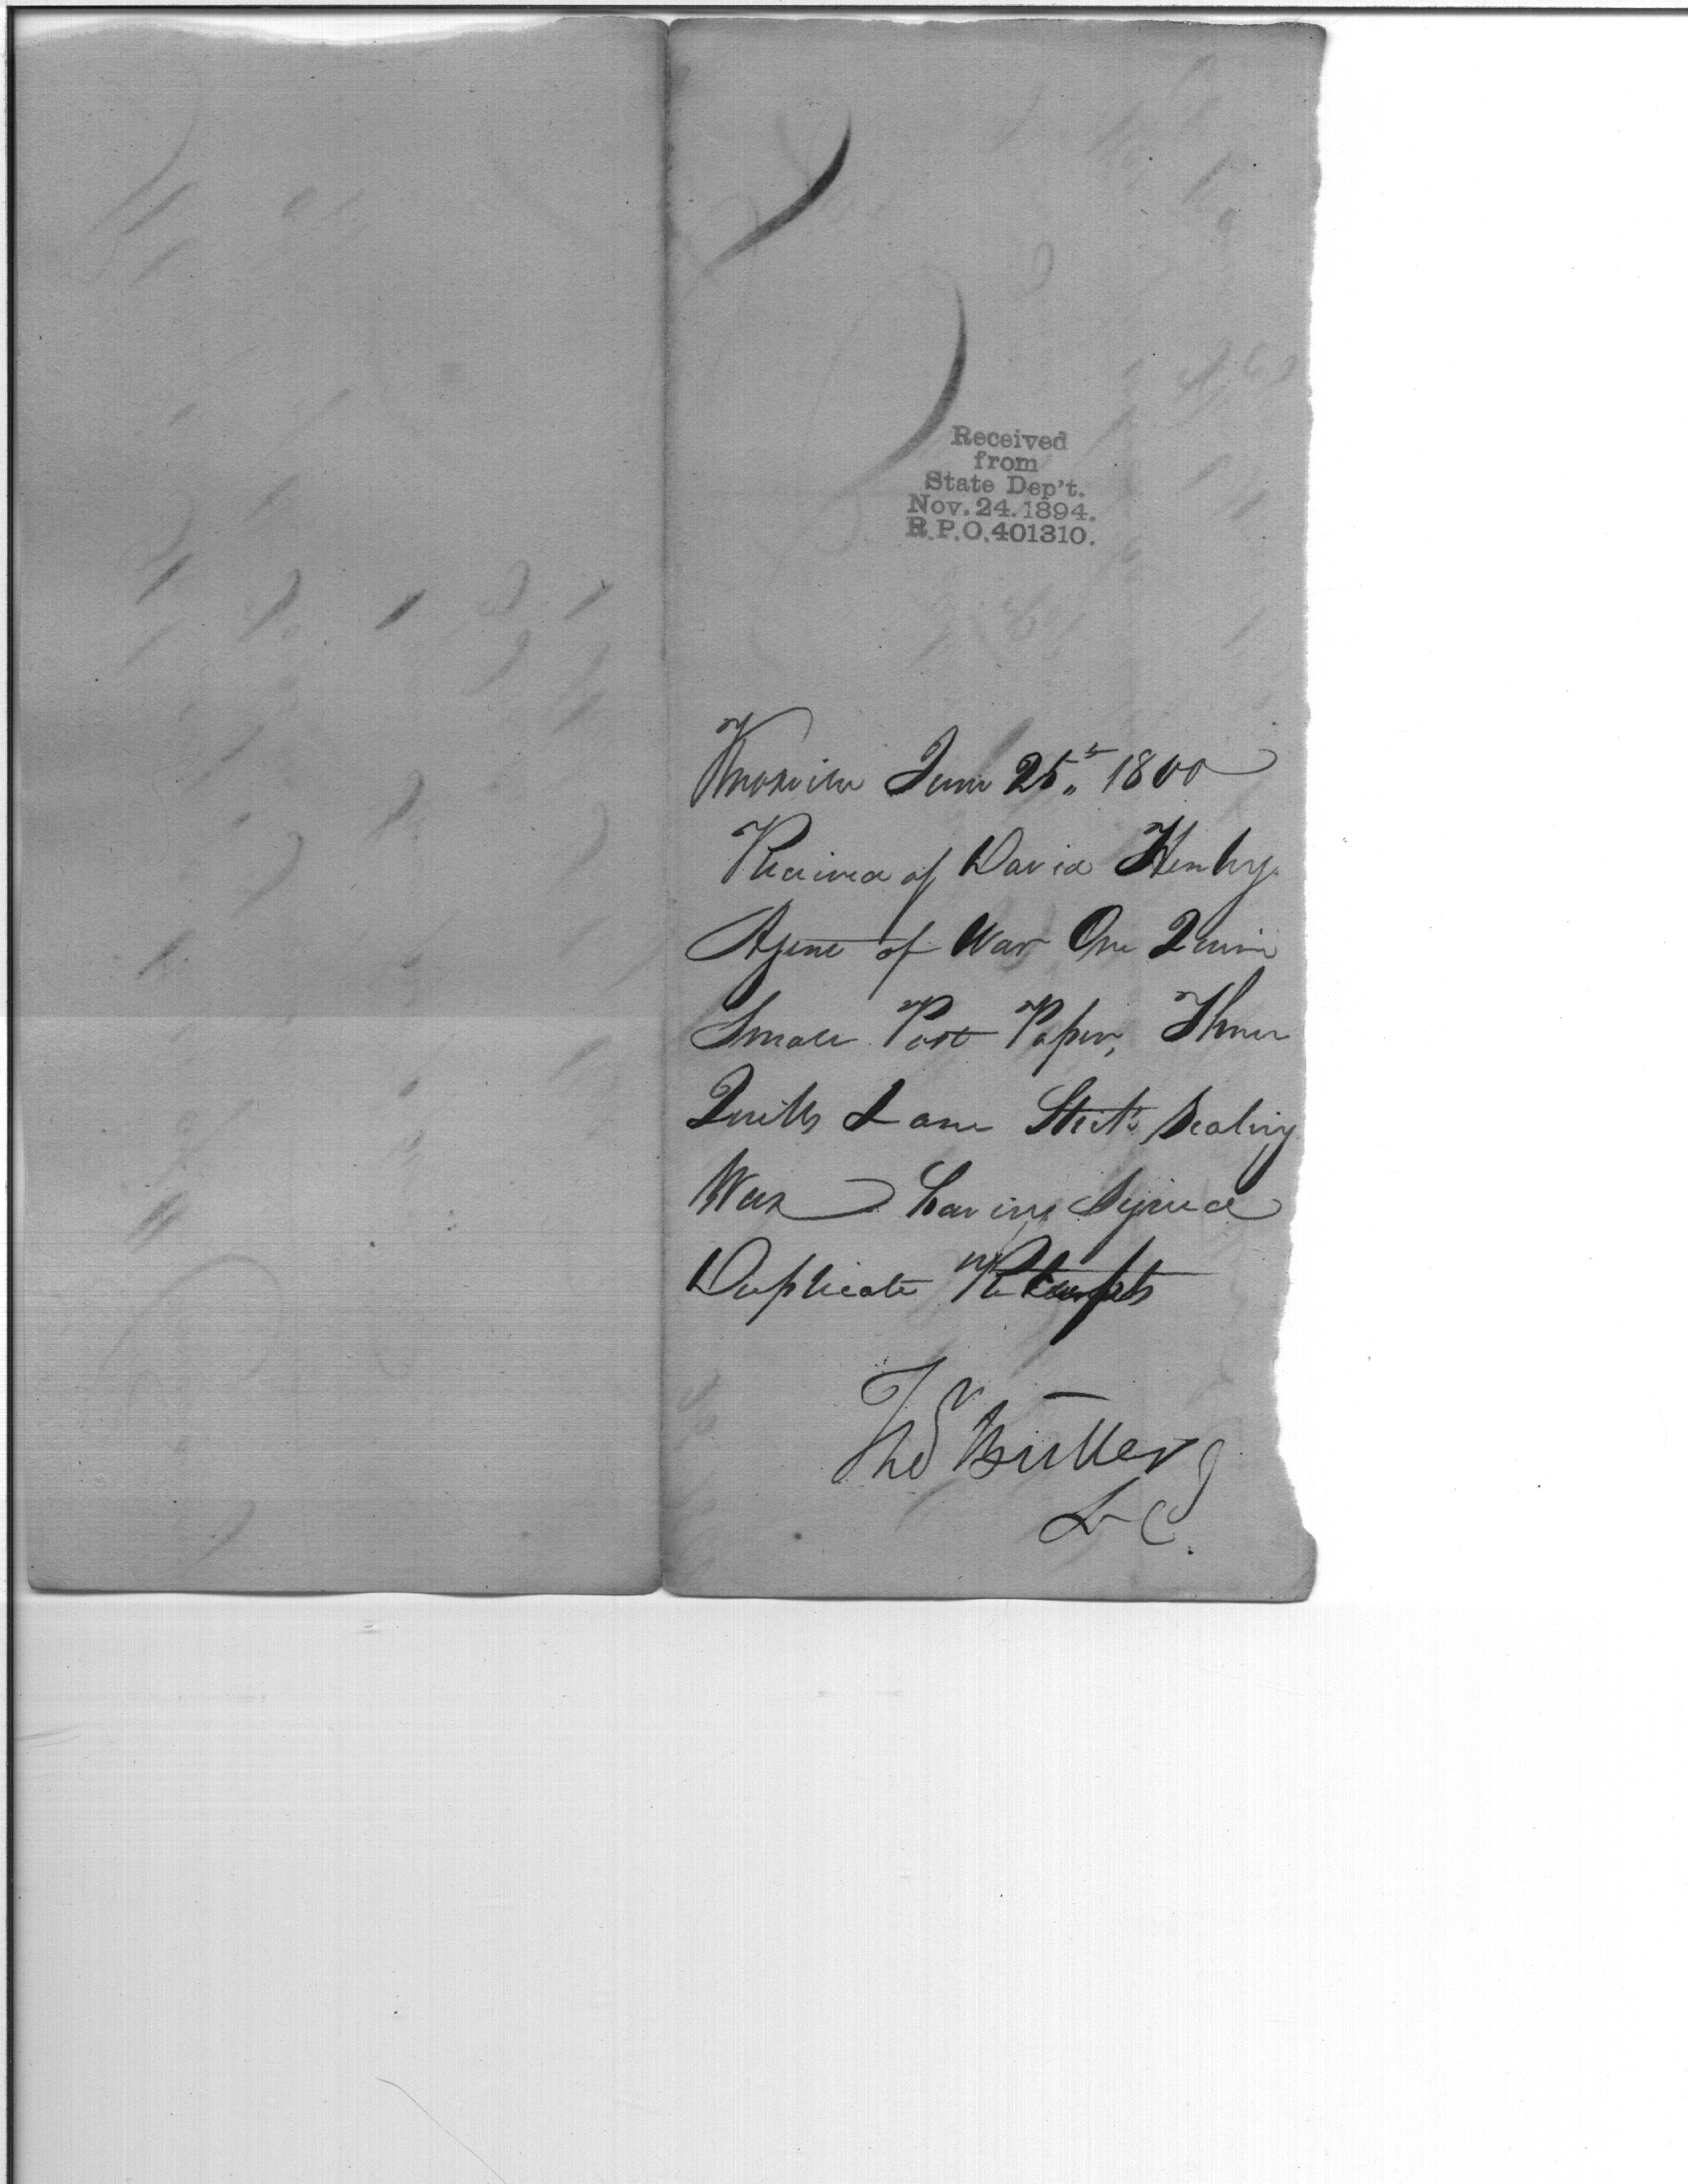 Received
from
State Dep't.
Nov. 24. 1894.
R.P.O. 401310.
Knoxville June 25th 1800
Received of David Henley
Agent of War One Quire
Small Post Paper, Three
Quills & one Stick Sealing
Wax having Signed
Duplicate Receipts
Thos Butler
Lt C.